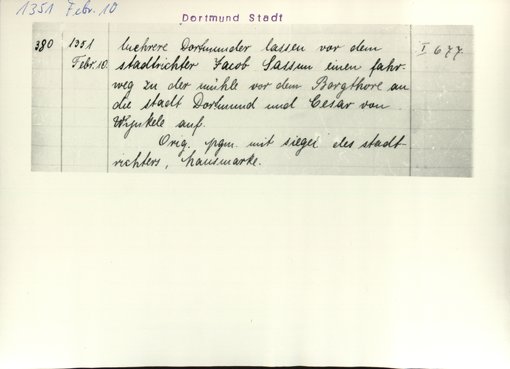 1351 Febr. 10
Dortmund Stadt
380 1351 Febr. 10. Mehrere Dortmunder lassen vor dem
stadtrichter Jacob Sassun einen fahr-
weg zu der mühle vor dem Borgthore an
die stadt Dortmund und Cesar von
Wynkele auf.
Orig. pgm. mit siegel des stadt-
richters, hausmarke.
I 677